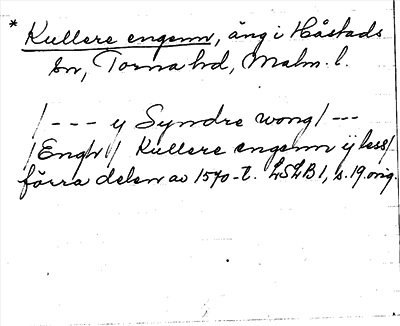 * Kullere engenn, äng i Håstads
sn, Torna hd, Malm. l.
/--- y Syndre wong/ ---
/Engh/ Kullere engenn ÿ less/
förra delen av 1570-t. LSLB 1, s. 19. orig.